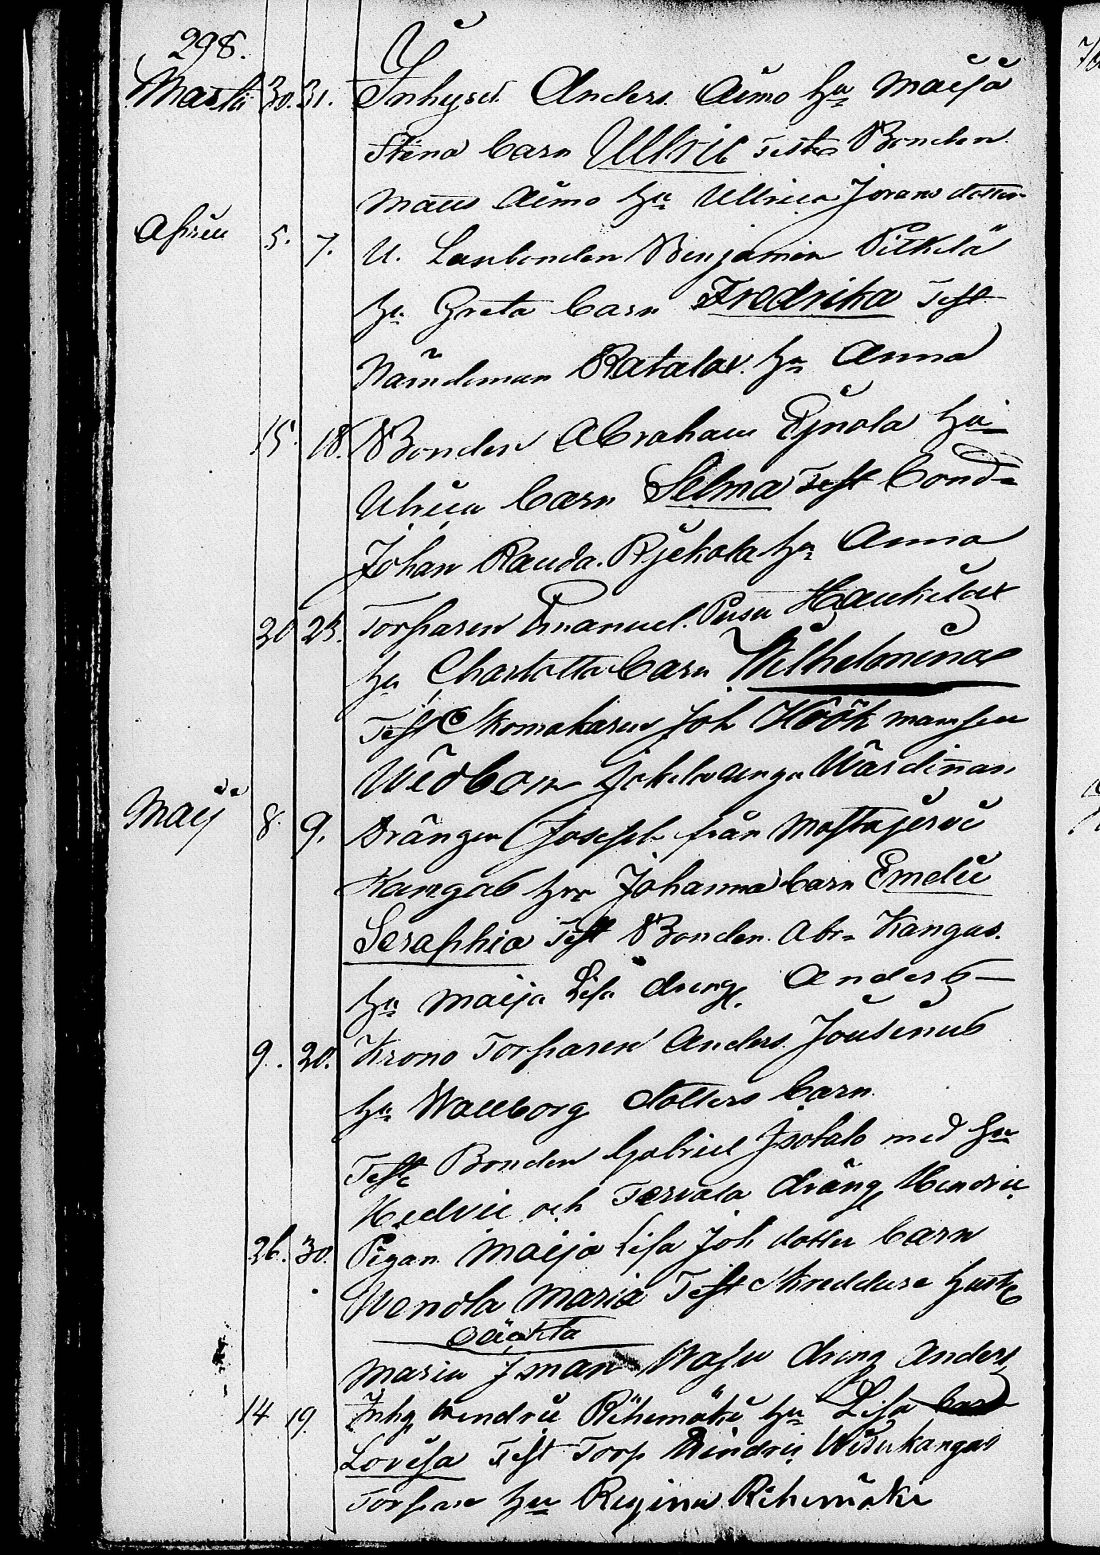 298.
Martii 30. 31. Inhyses Anders Aimo hu Maija
Stina barn Ullric Test Bonden
Matts Aimo hu Ullrica Jörans dotter
Aprill 5. 7. U. Lanbonden Benjamin Pitkelä
hu Greta barn Fredrika Test
Nämdeman Ratala hu Anna
15. 18. Bonden Abraham Ejnola hu
Ulrica barn Selma Test bond
Johan Rauda Kjekola hu Anna
20 23. Torparen Emanuel Haukilax
hu Charlotta barn Wilhelmina
Test Skomakaren Joh Höök mamsen
Widbom Wärdinnan
Maij 8. 9. Drängen Joseph från Mattajervi
Kangas hu Johanna barn Emelie
Seraphia Test Bonden Abr Kangas.
hu Maija Lisa dreng Anders
9. 20. Krono Torparen Anders Jousinus
hu Wallborg dotters barn
Test Bonden Gabriel med hu
Hedvic och Tervala dräng Hendric
26. 30. Pigan Maija Lisa Joh dotter barn
Wendla Maria Test Skreddare
oäckta
Maria dreng Anders
14 19. Inhy Hendric Rihimäki hu Lisa barn
Lovisa Test Torp Hindric Widerkangas
Torpare hu Regina Rihimäki